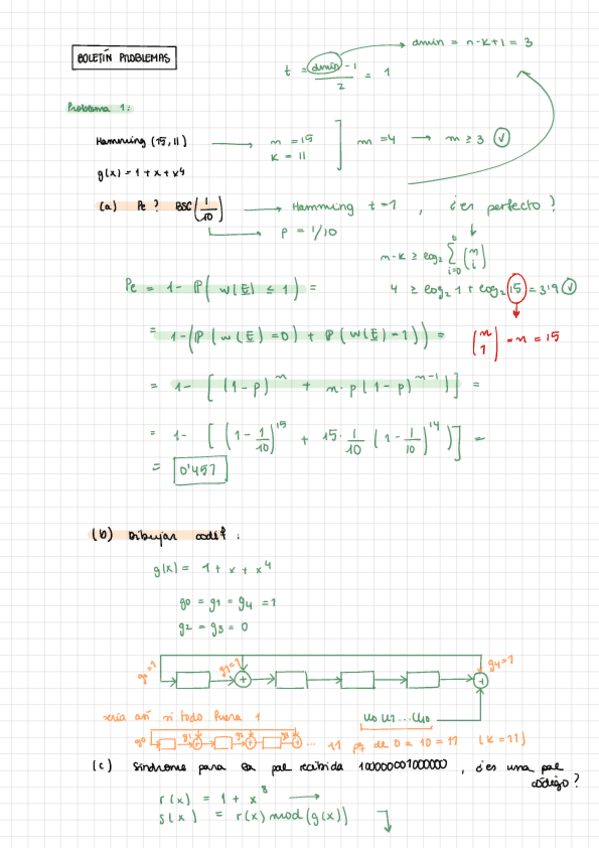 BOLETÍN PROBLEMAS
t = (dmin - 1)/2 = 1
dmin = n-k+1 = 3
Problema 1:
Hamming (15,11) → n = 15
k = 11
m = 4 → m ≥ 3 ✓
g(x) = 1 + x + x⁴
(a) Pe? BSC(1/10) → Hamming t=1, ¿es perfecto?
p = 1/10
n-k ≥ log₂ Σ_{i=0}^{t} (n i)
Pe = 1 - P( w(E) ≤ 1 ) =
4 ≥ log₂ 1 + log₂ 15 = 3'9 ✓
= 1-(P(w(E)=0) + P(w(E)=1)) =
(n 1) = n = 15
= 1- [(1-p)ⁿ + n·p(1-p)ⁿ⁻¹)] =
= 1- [(1-1/10)¹⁵ + 15·1/10 (1-1/10)¹⁴)] =
= 0'457
(b) Dibujar codif:
g(x) = 1 + x + x⁴
g0 = g1 = g4 = 1
g2 = g3 = 0
g0=1
g1=1
g4=1
+
+
sería así si todo fuera 1
u0 u1 ... u10
g0 g1 + g2 + g3 + ... 11 pq de 0 a 10 = 11 (k=11)
(c) Síndrome para la pal recibida 100000001000000, ¿es una pal
código?
r(x) = 1 + x⁸ →
s(x) = r(x) mod (g(x))